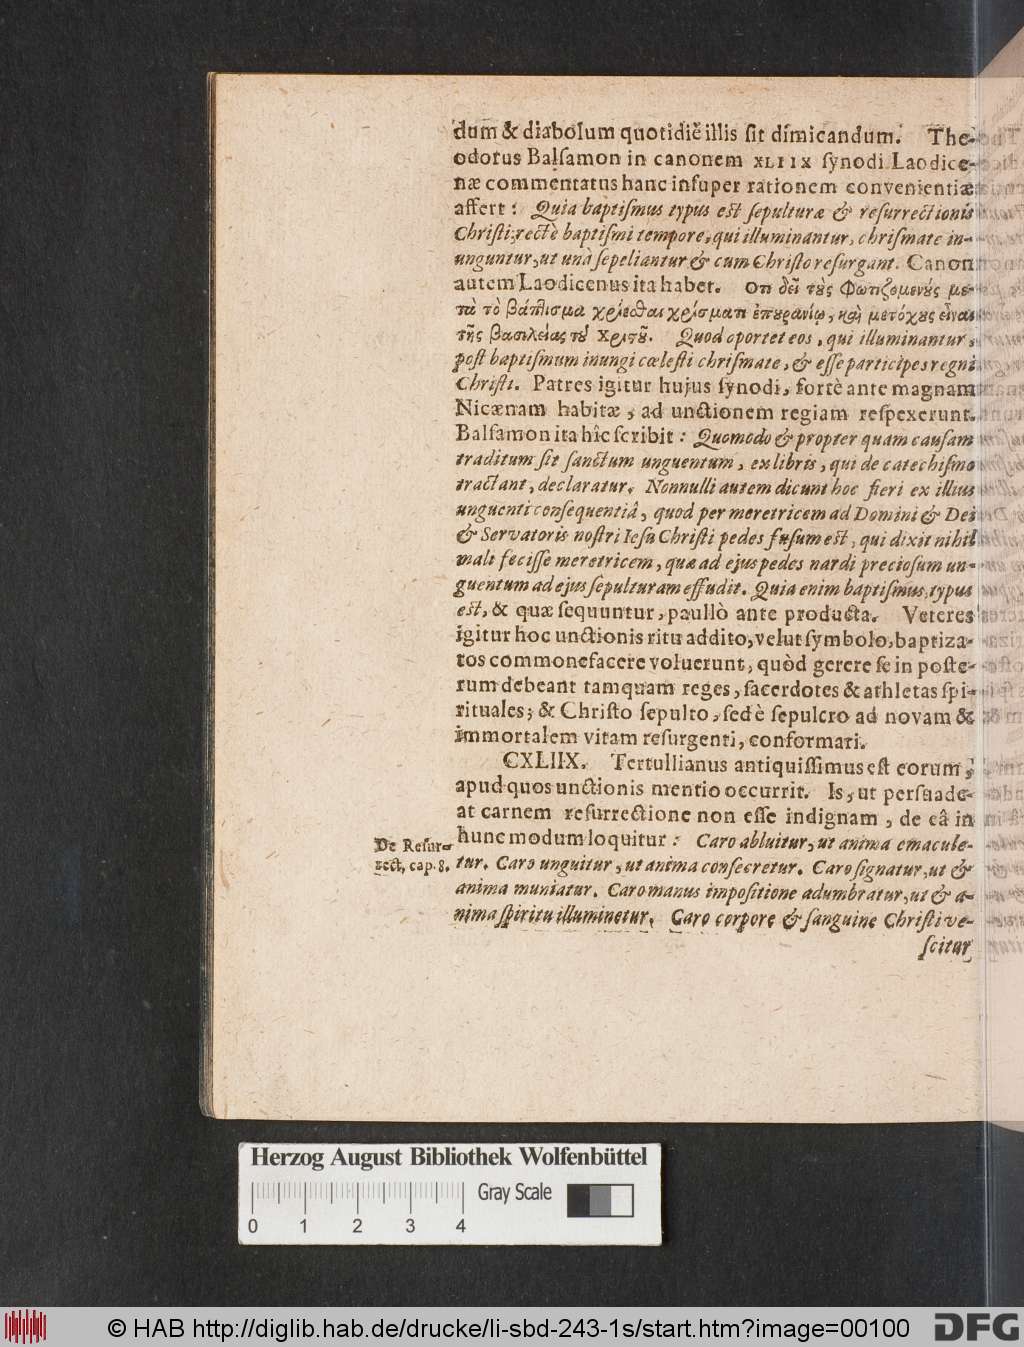 dum & diabolum quotidiè illis sit dimicandum. The-
odotus Balsamon in canonem XLIIX synodi Laodice-
næ commentatus hanc insuper rationem convenientiæ
affert: Quia baptismus typus est sepulturæ & resurrectionis
Christi; rectè baptismi tempore, qui illuminantur, chrismate in-
unguntur, ut unà sepeliantur & cum Christo resurgant. Canon
autem Laodicenus ita habet. ὅτι δεῖ τοὺς φωτιζομένους με-
τὰ τὸ βάπτισμα χρίεσθαι χρίσματι ἐπουρανίῳ, καὶ μετόχους εἶναι
τῆς βασιλείας τοῦ Χριστοῦ. Quod oportet eos, qui illuminantur,
post baptismum inungi cœlesti chrismate, & esse participes regni
Christi. Patres igitur hujus synodi, fortè ante magnam
Nicænam habitæ, ad unctionem regiam respexerunt.
Balsamon ita hîc scribit: Quomodo & propter quam causam
traditum sit sanctum unguentum, ex libris, qui de catechismo
tractant, declaratur. Nonnulli autem dicunt hoc fieri ex illius
unguenti consequentiâ, quod per meretricem ad Domini & Dei
& Servatoris nostri Iesu Christi pedes fusum est, qui dixit nihil
mali fecisse meretricem, quæ ad ejus pedes nardi preciosum un-
guentum ad ejus sepulturam effudit. Quia enim baptismus typus
est, & quæ sequuntur, paullò ante producta. Veteres
igitur hoc unctionis ritu addito, velut symbolo, baptiza-
tos commonefacere voluerunt, quòd gerere se in poste-
rum debeant tamquam reges, sacerdotes & athletas spi-
rituales; & Christo sepulto, sed è sepulcro ad novam &
immortalem vitam resurgenti, conformari.
CXLIIX. Tertullianus antiquissimus est eorum,
apud quos unctionis mentio occurrit. Is, ut persuade-
at carnem resurrectione non esse indignam, de eâ in
hunc modum loquitur: Caro abluitur, ut anima emacule-
De Resur-
rect. cap. 8.
tur. Caro unguitur, ut anima consecretur. Caro signatur, ut &
anima muniatur. Caro manus impositione adumbratur, ut & a-
nima spiritu illuminetur. Caro corpore & sanguine Christi ve-
scitur
Herzog August Bibliothek Wolfenbüttel
Gray Scale
0 1 2 3 4
© HAB http://diglib.hab.de/drucke/li-sbd-243-1s/start.htm?image=00100
DFG